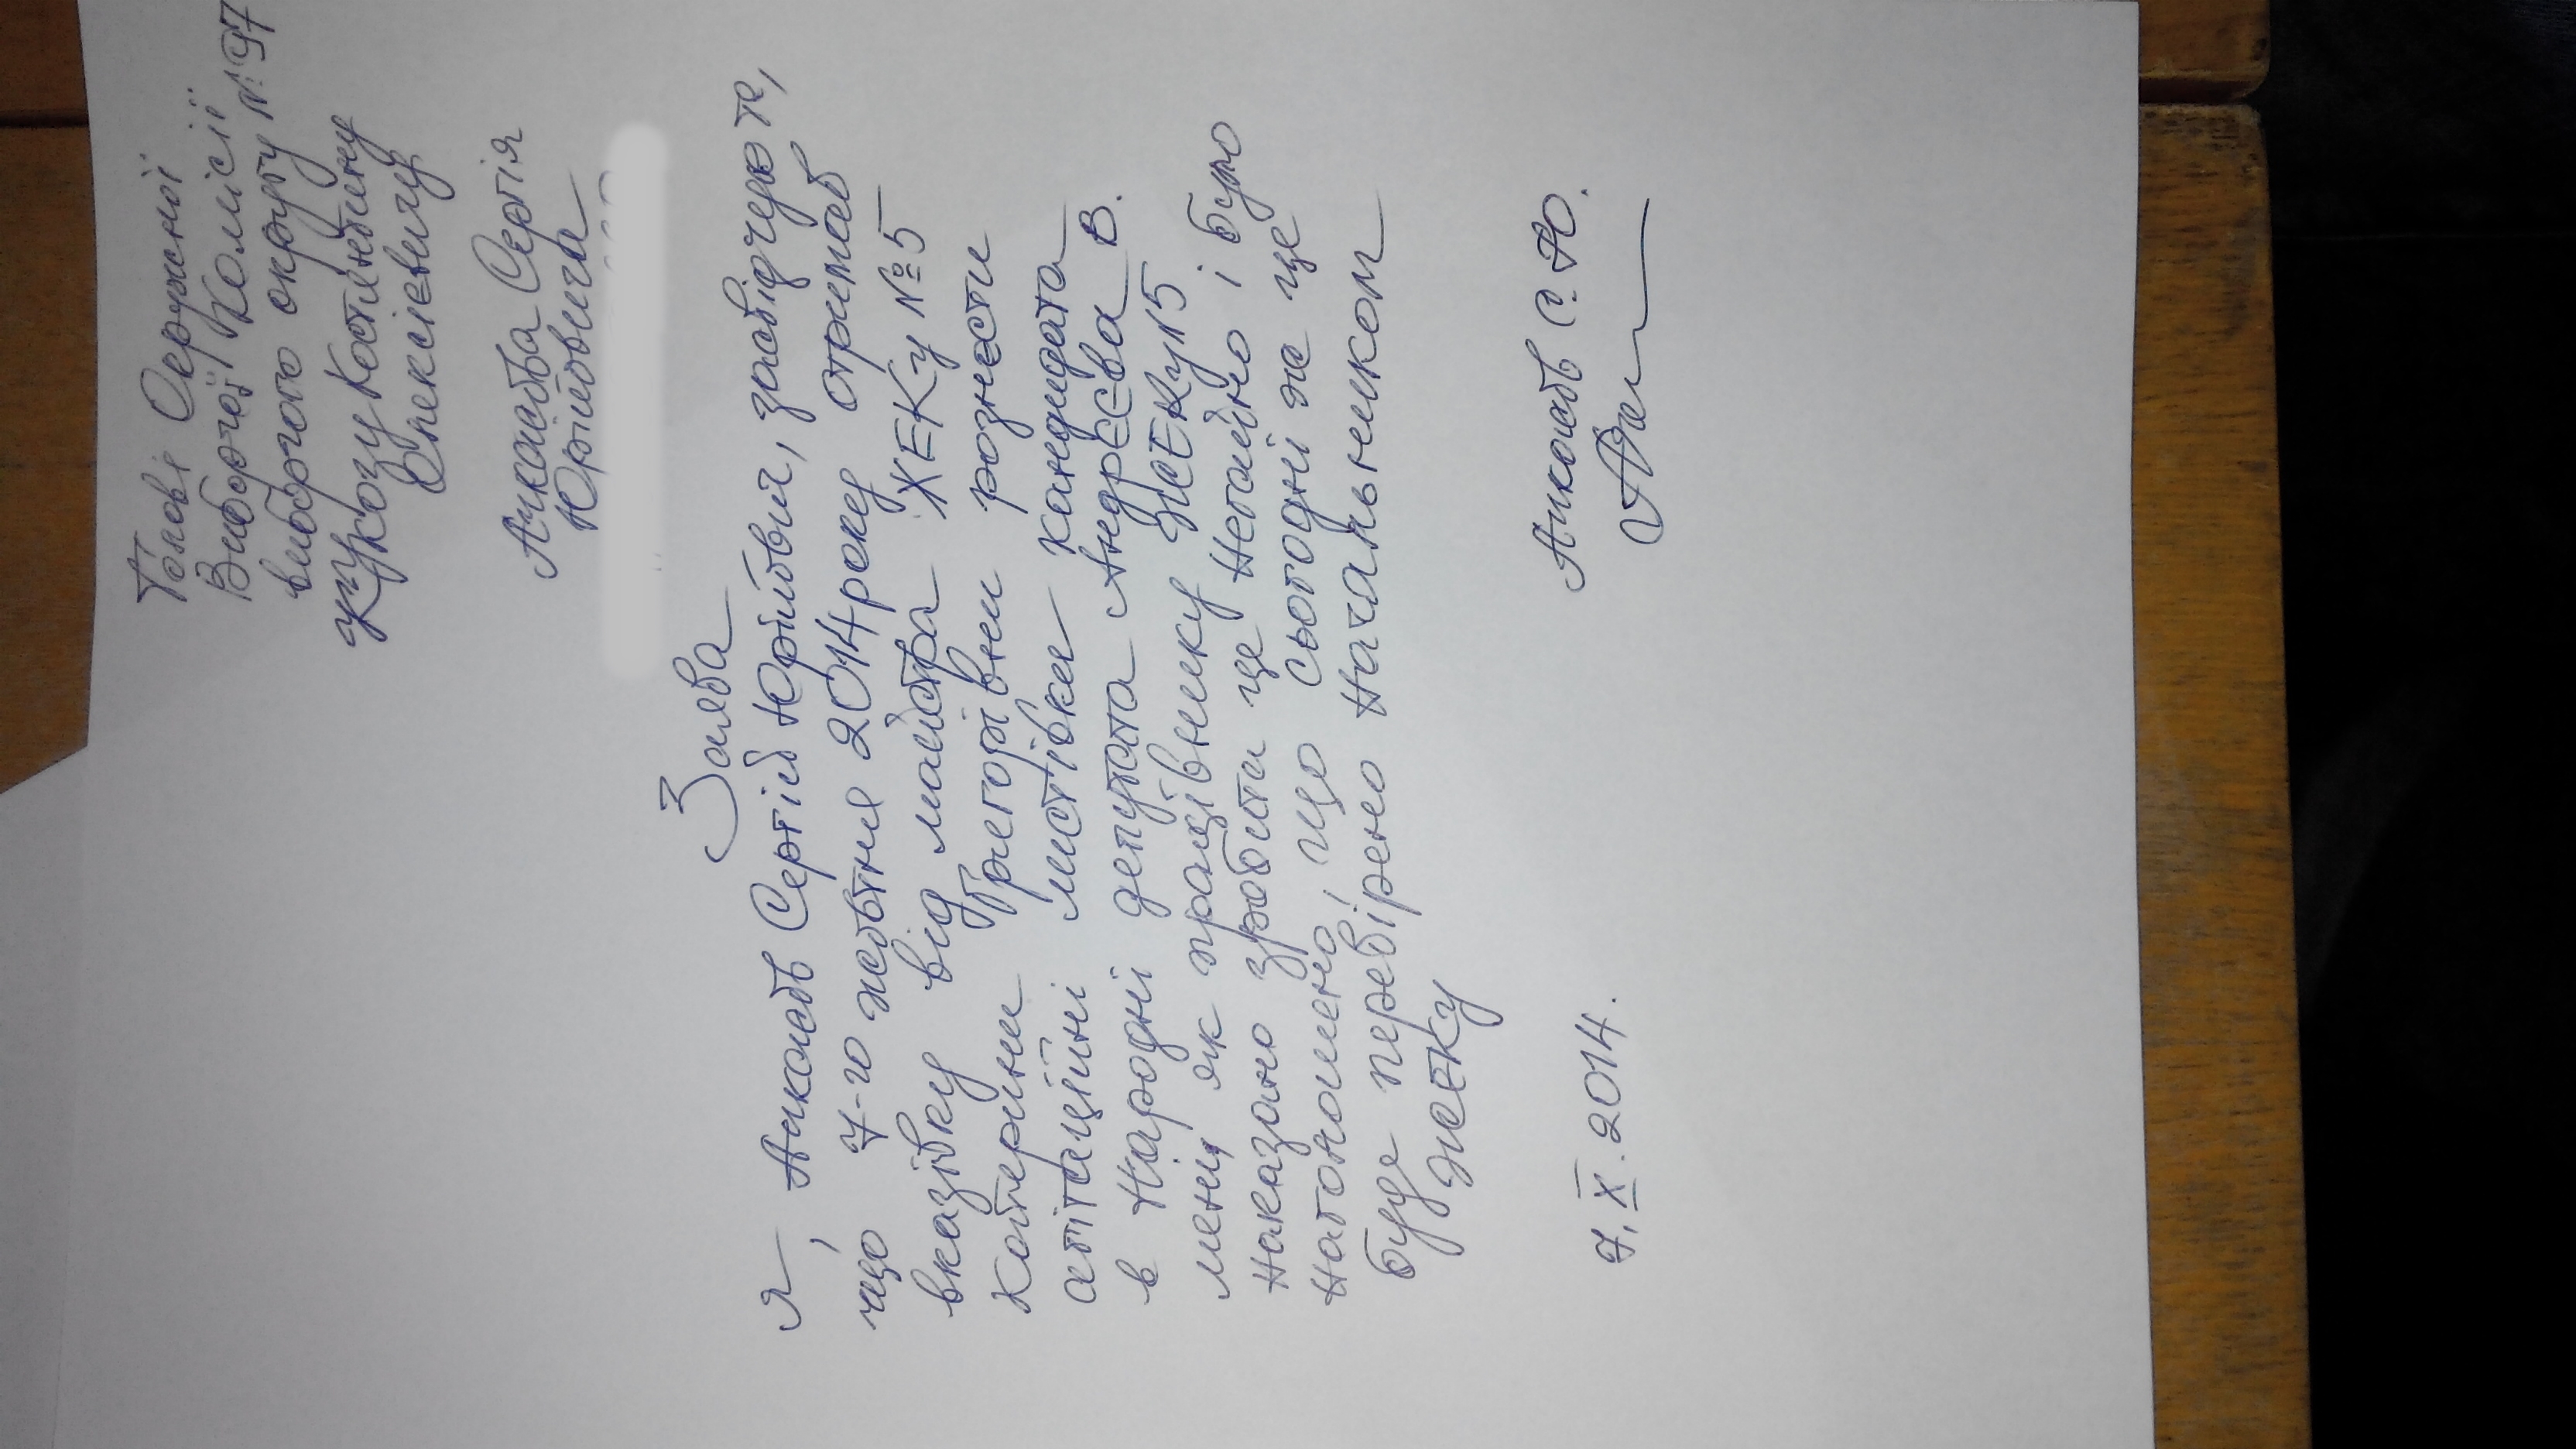 Голові Окружної
Виборчої Комісії
виборчого округу № 97
Костянтину
Олексієвичу
Сергія
Юрійовича
Заява
Я, Сергій Юрійович, засвідчую те,
що 7-го жовтня 2014 року отримав
вказівку від майстра ЖЕКу №5
Катерини Григорівни рознести
агітаційні листівки кандидата
в Народні депутата Андрєєва В.
мені, як працівнику ЖЕКу №5 і було
наказано зробити це негайно
наголошено, що сьогодні же це
буде перевірено начальником
ЖЕКу
7.X.2014. С.Ю.